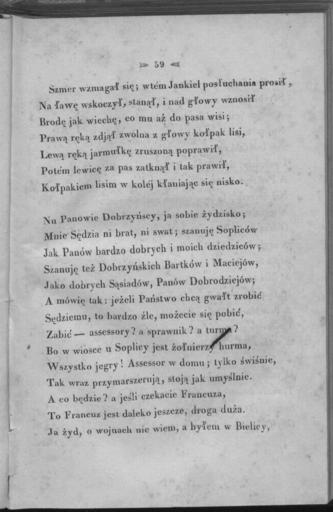 59
Szmer wzmagał się; wtém Jankiel posłuchania prosił,
Na ławę wskoczył, stanął, i nad głowy wznosił
Brodę jak wiechę, co mu aż do pasa wisi;
Prawą ręką zdjął zwolna z głowy kołpak lisi,
Lewą ręką jarmułkę zruszoną poprawił,
Potém lewicę za pas zatknął i tak prawił,
Kołpakiem lisim w koléj kłaniając się nisko.
Nu Panowie Dobrzyńscy, ja sobie żydzisko;
Mnie Sędzia ni brat, ni swat; szanuję Sopliców
Jak Panów bardzo dobrych i moich dziedziców;
Szanuję też Dobrzyńskich Bartków i Maciejów,
Jako dobrych Sąsiadów, Panów Dobrodziejów;
A mówię tak: jeżeli Państwo chcą gwałt zrobić
Sędziemu, to bardzo źle, możecie się pobić,
Zabić — assessory? a sprawnik? a turma?
Bo w wiosce u Soplicy jest żołnierzy hurma,
Wszystko jegry! Assessor w domu; tylko świśnie,
Tak wraz przymarszerują, stoją jak umyślnie.
A co będzie? a jeśli czekacie Francuza,
To Francuz jest daleko jeszcze, droga duża.
Ja żyd, o wojnach nie wiem, a byłem w Bielicy,